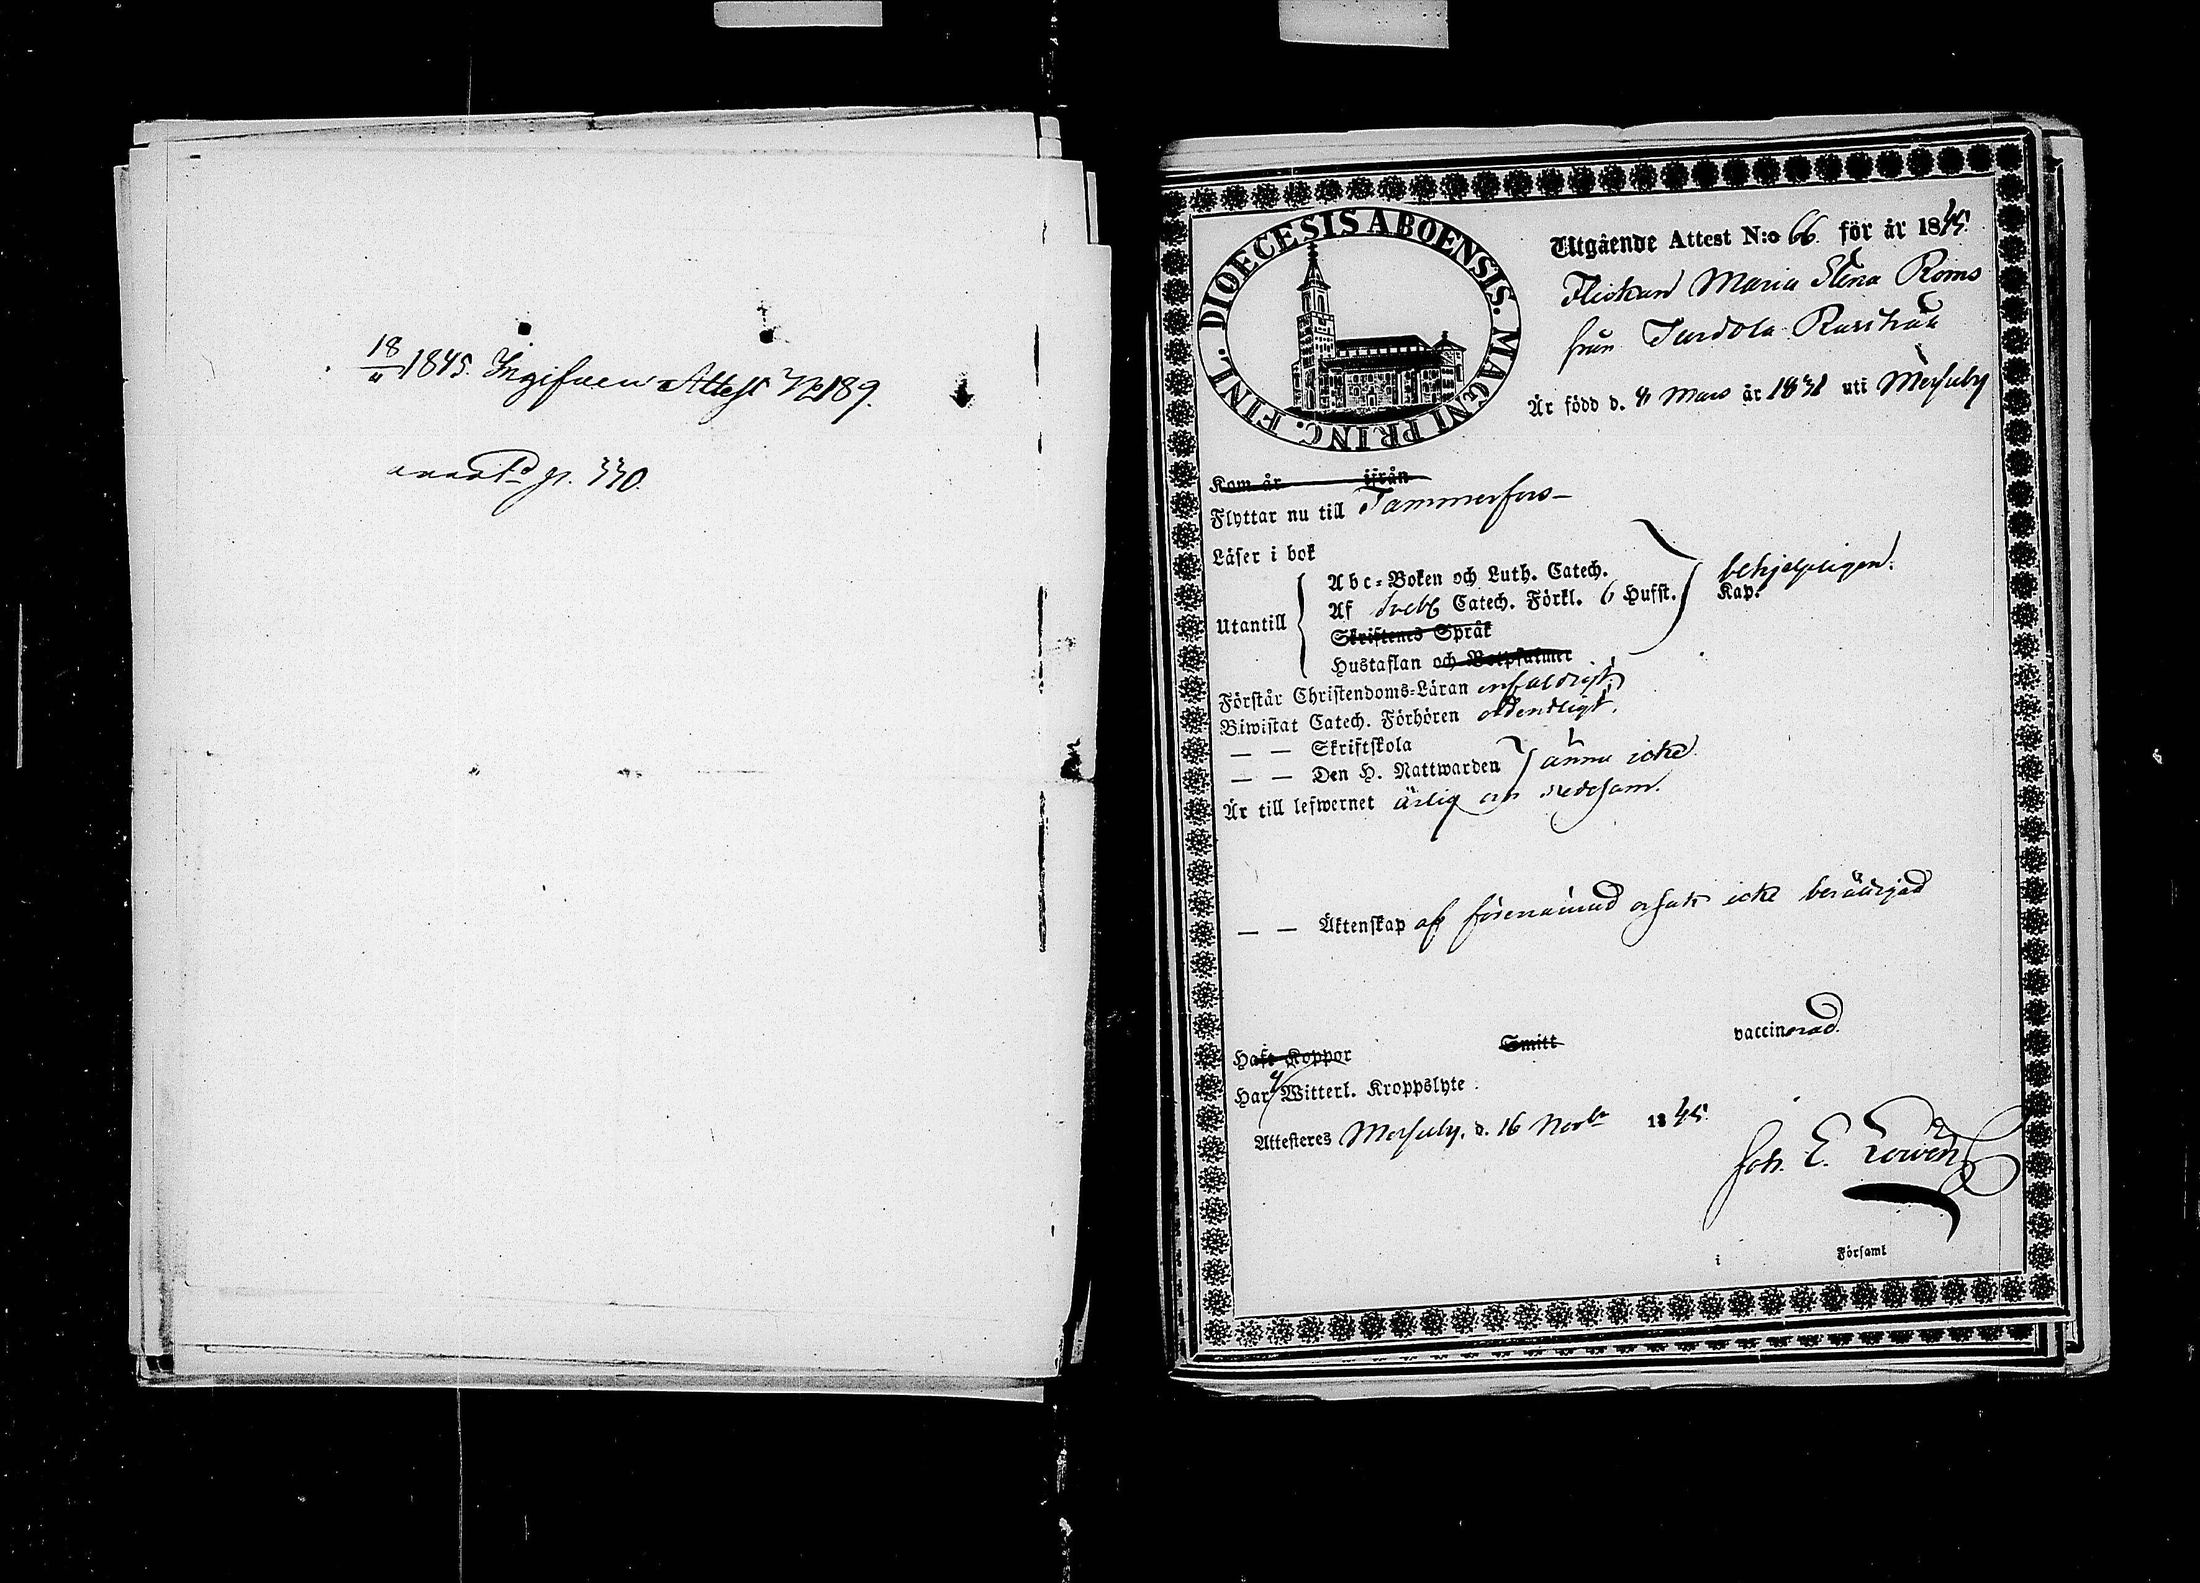 18/11 1845. Ingifven Attest No 189.
annot. p. 330.
DIOECESIS ABOENSIS. MAGNI PRINC. FINL.
Utgående Attest N:o 66. för år 1845.
Flickan Maria Stina Roms
från Turdola
Är född d. 4 Mars år 1831 uti Messuby
Kom år ifrån
Flyttar nu till Tammerfors
Läser i bok
Utantill
Abc-Boken och Luth. Catech.
Af Sveb. Catech. Förkl. 6 Hufst. Kap. behjelpligen.
Skriftenes Språk
Hustaflan och Botpsalmer
Förstår Christendoms-Läran enfaldigt.
Biwistat Catech. Förhören ordentligt.
— — Skriftskola
— — Den H. Nattwarden ännu icke
Är till lefwernet ärlig och redesam.
— — Äktenskap af förenämnd orsak icke berättigad
Haft Koppor Smitt vaccinerad.
Har Witterl. Kroppslyte.
Attesteres Messuby, d. 16 Novbr 1845.
Joh. E. Lowén
i Församl